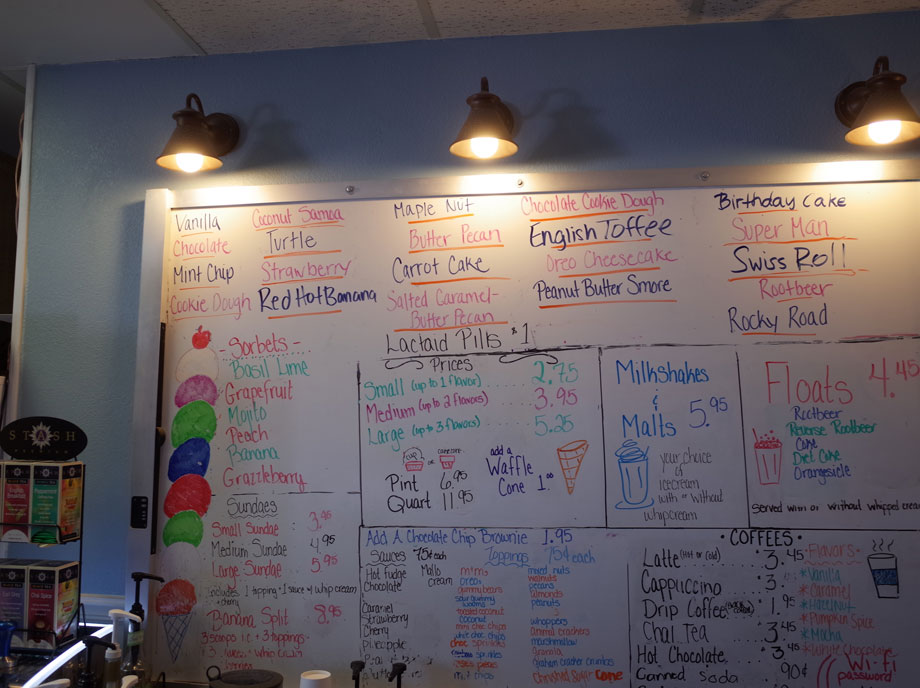 Vanilla
Chocolate
Mint Chip
Cookie Dough
Coconut Samoa
Turtle
Strawberry
Red Hot Banana
Maple Nut
Butter Pecan
Carrot Cake
Salted Caramel-
Butter Pecan
Lactaid Pills $1
Chocolate Cookie Dough
English Toffee
Oreo Cheesecake
Peanut Butter Smore
Birthday Cake
Super Man
Swiss Roll
Rootbeer
Rocky Road
- Sorbets -
Basil Lime
Grapefruit
Mojito
Peach
Banana
Grazzleberry
Sundaes
Small Sundae 3.95
Medium Sundae 4.95
Large Sundae 5.95
Includes 1 topping + 1 sauce w/ whip cream
+ cherry
Banana Split 8.95
3 scoops i.c. + 3 toppings
Prices
Small (up to 1 flavor) 2.75
Medium (up to 2 flavors) 3.95
Large (up to 3 flavors) 5.25
cup or cake cone
Pint 6.95
Quart 11.95
add a
Waffle
Cone 1.00
Milkshakes
&
Malts 5.95
your choice
of
icecream
with or without
whipcream
Floats 4.45
Rootbeer
Reverse Rootbeer
Coke
Diet Coke
Orangesicle
served with or without whipped cream
Add A Chocolate Chip Brownie 1.95
Sauces 75¢ each
Hot fudge
Chocolate
Caramel
Strawberry
Cherry
Pineapple
Mallo
cream
Toppings 75¢ each
m+ms
oreo
gummi bears
sour gummy
worms
toasted coconut
coconut
mini choc chips
white choc chips
choc sprinkles
rainbow sprinkles
mixed nuts
walnuts
pecans
almonds
peanuts
whoppers
animal crackers
marshmallow
granola
graham cracker crumbles
crushed sugar cone
• COFFEES •
Latte (Hot or Cold) 3.45
Cappuccino 3.
Drip Coffee 1.95
Chai Tea 3.45
Hot Chocolate 3.45
Canned Soda 90¢
Flavors -
*Vanilla
*Caramel
*Hazelnut
*Pumpkin Spice
*Mocha
*White Chocolate
Wi-Fi
password
STASH